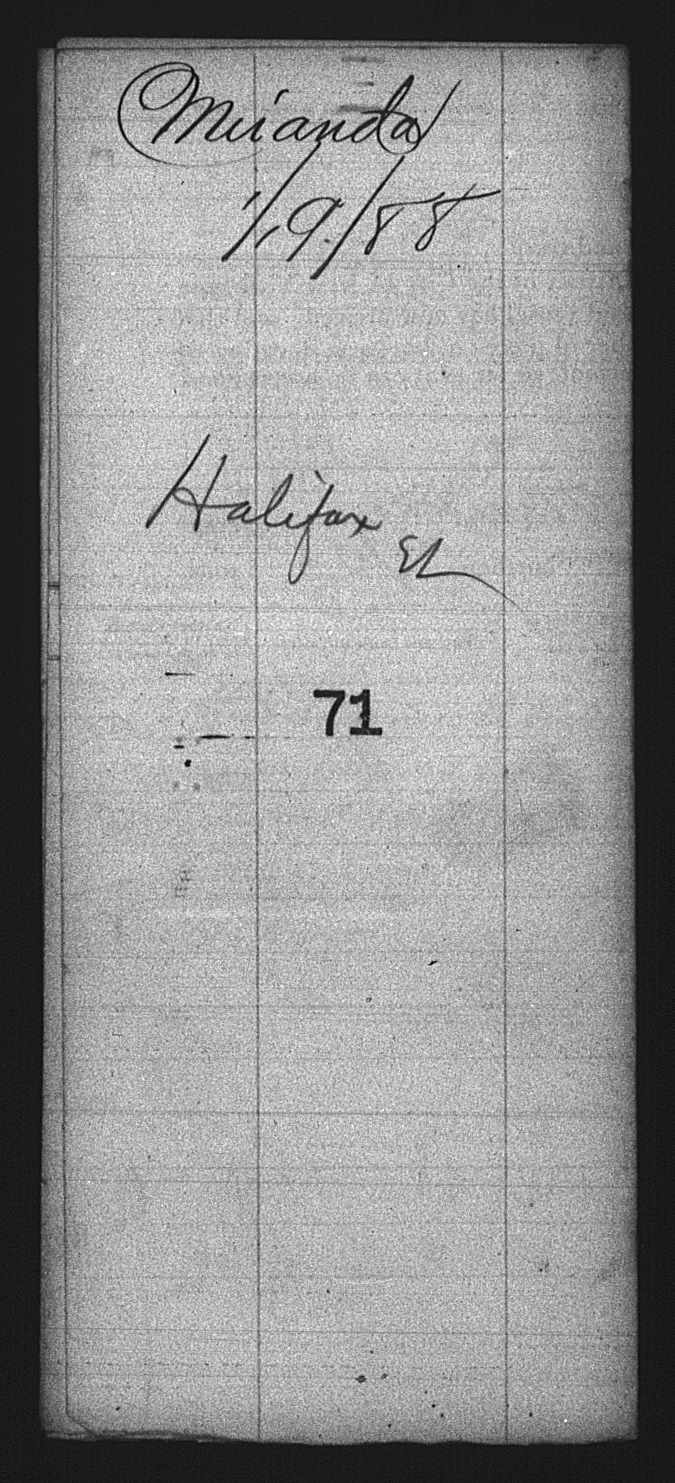 Miranda
1/19/88
Halifax
71